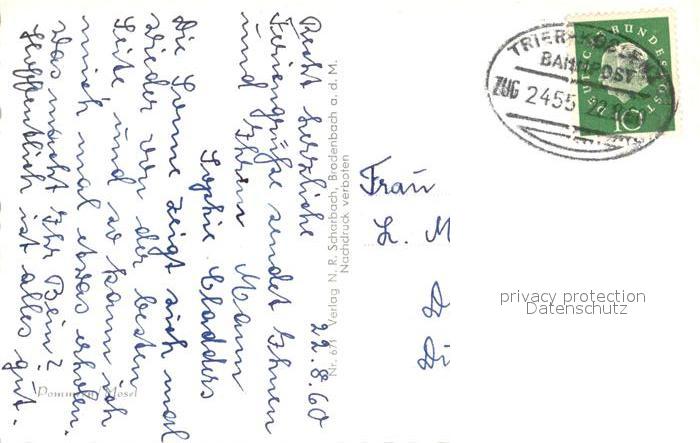 22.8.60
Recht herzliche
Feriengrüße sendet Ihnen
und Ihrem Mann
Sophie Cladders
Die Sonne zeigt sich mal
wieder von der besten
Seite und so kann ich
mich mal etwas erholen.
Was macht Ihr Bein?
Hoffentlich ist alles gut.
Pommern/Mosel
Nr. 671 Verlag N. R. Scharbach, Brodenbach a. d. M.
Nachdruck verboten
TRIER-KOBLENZ
BAHNPOST
ZUG 2455 22.8.
DEUTSCHE BUNDESPOST
10
Frau
L. M
D
Di
privacy protection
Datenschutz